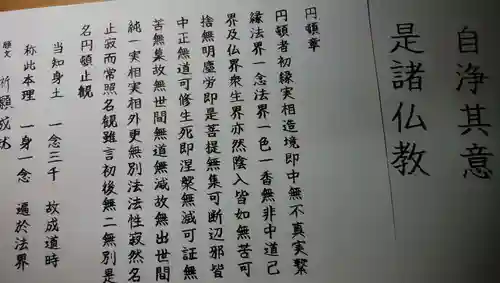 自浄其意
是諸仏教
円頓章
円頓者初縁実相造境即中無不真実繋
縁法界一念法界一色一香無非中道己
界及仏界衆生界亦然陰入皆如無苦可
捨無明塵労即是菩提無集可断辺邪皆
中正無道可修生死即涅槃無滅可証無
苦無集故無世間無道無滅故無出世間
純一実相実相外更無別法法性寂然名
止寂而常照名観雖言初後無二無別是
名円頓止観
当知身土 一念三千 故成道時
称此本理 一身一念 遍於法界
願文 祈願成就